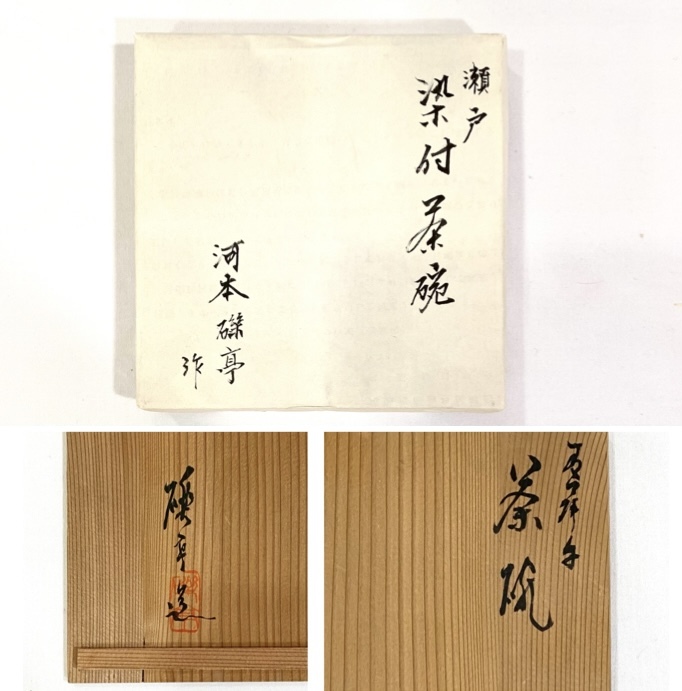 瀬戸
染付茶碗
河本礫亭
作
茶碗
礫亭造